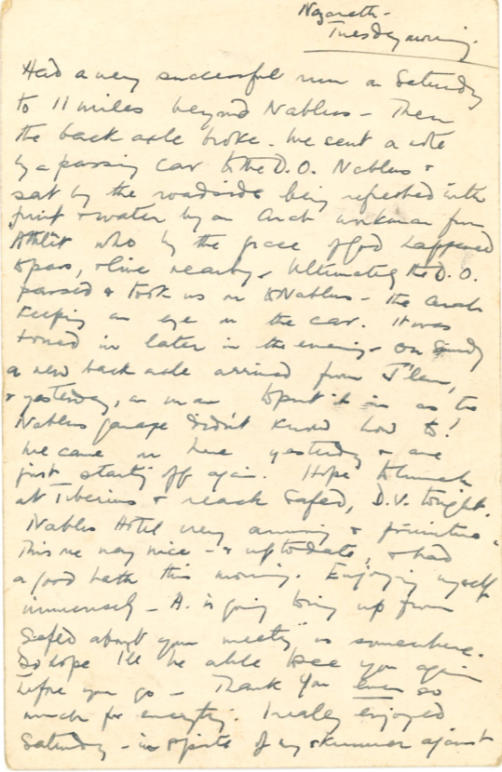 Nazareth -
Tuesday morning.
Had a very successful run on Saturday
to 11 miles beyond Nablus - Then
the back axle broke. We sent a note
by a passing car to the D.O. Nablus &
sat by the roadside being refreshed with
fruit & water by an Arab workman from
Athlit who by the grace of God happened
to pass, & live nearby. Ultimately the D.O.
passed & took us on to Nablus - the Arab
keeping an eye on the car. It was
towed in later in the evening. On Sunday
a new back axle arrived from J'lem,
& yesterday, a man to put it in as the
Nablus garage didn't know how to!
We came on here yesterday & are
just starting off again. Hope to lunch
at Tiberias & reach Safed, D.V. tonight.
Nablus Hotel very amusing & primitive.
This one very nice - & up to date, & had
a good bath this morning. Enjoying myself
immensely - H. is going to ring up from
Safed about your meeting us somewhere.
Do hope I'll be able to see you again
before you go - Thank you ever so
much for everything. I really enjoyed
Saturday - in spite of my against